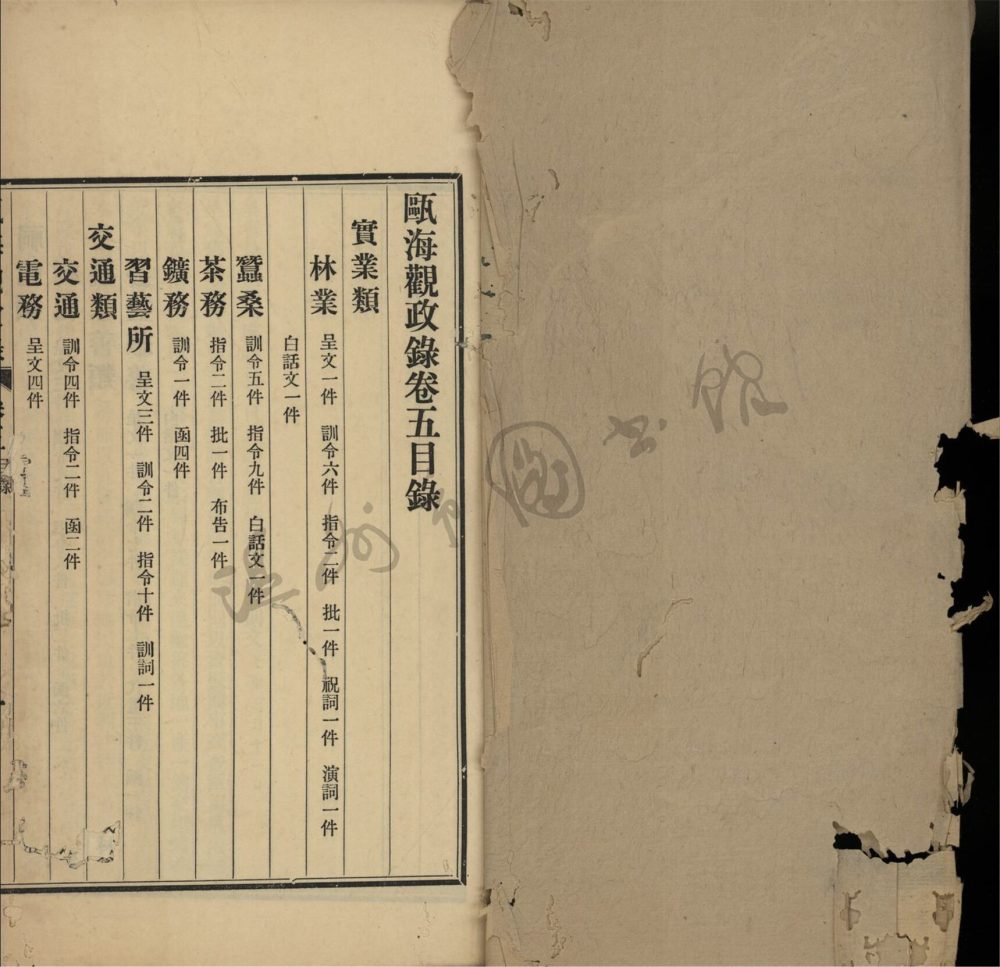 甌海觀政錄卷五目錄
實業類
林業 呈文一件 訓令六件 指令二件 批一件 祝詞一件 演詞一件
白話文一件
蠶桑 訓令五件 指令九件 白話文一件
茶務 指令二件 批一件 布告一件
鑛務 訓令一件 函四件
習藝所 呈文三件 訓令二件 指令十件 訓詞一件
交通類
交通 訓令四件 指令二件 函二件
電務 呈文四件